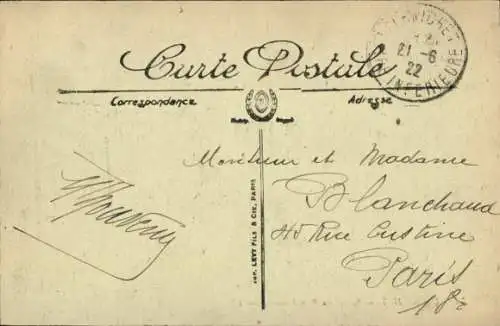 Carte Postale
Correspondance
Adresse
21-6
22
INFERIEURE
Monsieur et Madame
Blanchaud
45 Rue Custine
Paris
18e
LEVY FILS & CIE, PARIS